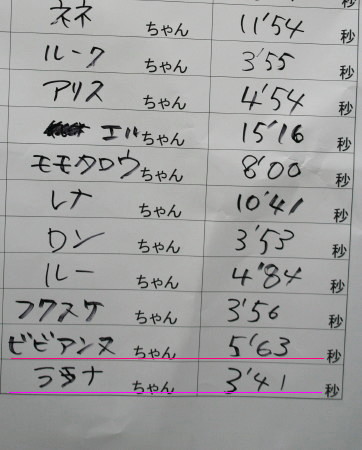 秒
ネネ ちゃん 11'54 秒
ルーク ちゃん 3'55 秒
アリス ちゃん 4'54 秒
エル ちゃん 15'16 秒
モモタロウ ちゃん 8'00 秒
レナ ちゃん 10'41 秒
ロン ちゃん 3'53 秒
ルー ちゃん 4'84 秒
フクスケ ちゃん 3'56 秒
ビビアンヌ ちゃん 5'63 秒
ララナ ちゃん 3'41 秒